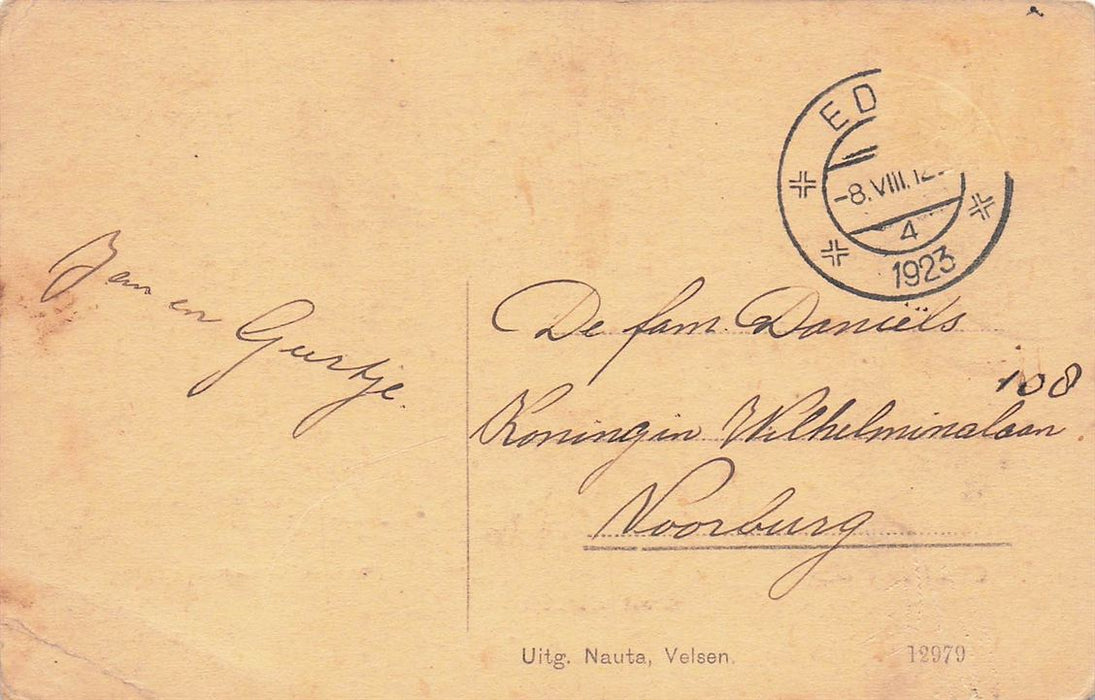 Jan en Geertje.
ED
-8.VIII.12
4
1923
De fam. Daniëls
108
Koningin Wilhelminalaan.
Voorburg
Uitg. Nauta, Velsen.
12979